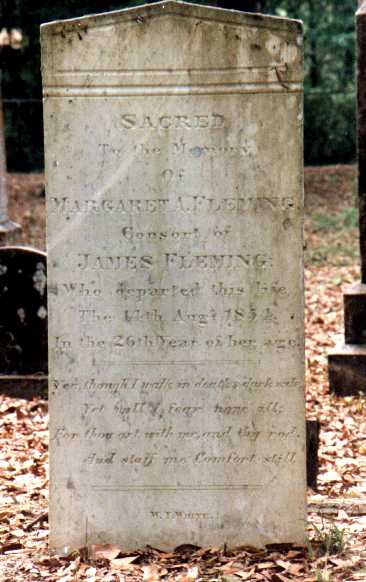 SACRED
To the Memory
Of
MARGARET A. FLEMING
Consort of
JAMES FLEMING:
Who departed this life
The 14th Augt. 1854.
In the 26th Year of her age.
Yea, though I walk in death's dark vale,
Yet will I fear none ill;
For thou art with me, and thy rod
And staff me Comfort still
W. T. WHITE.